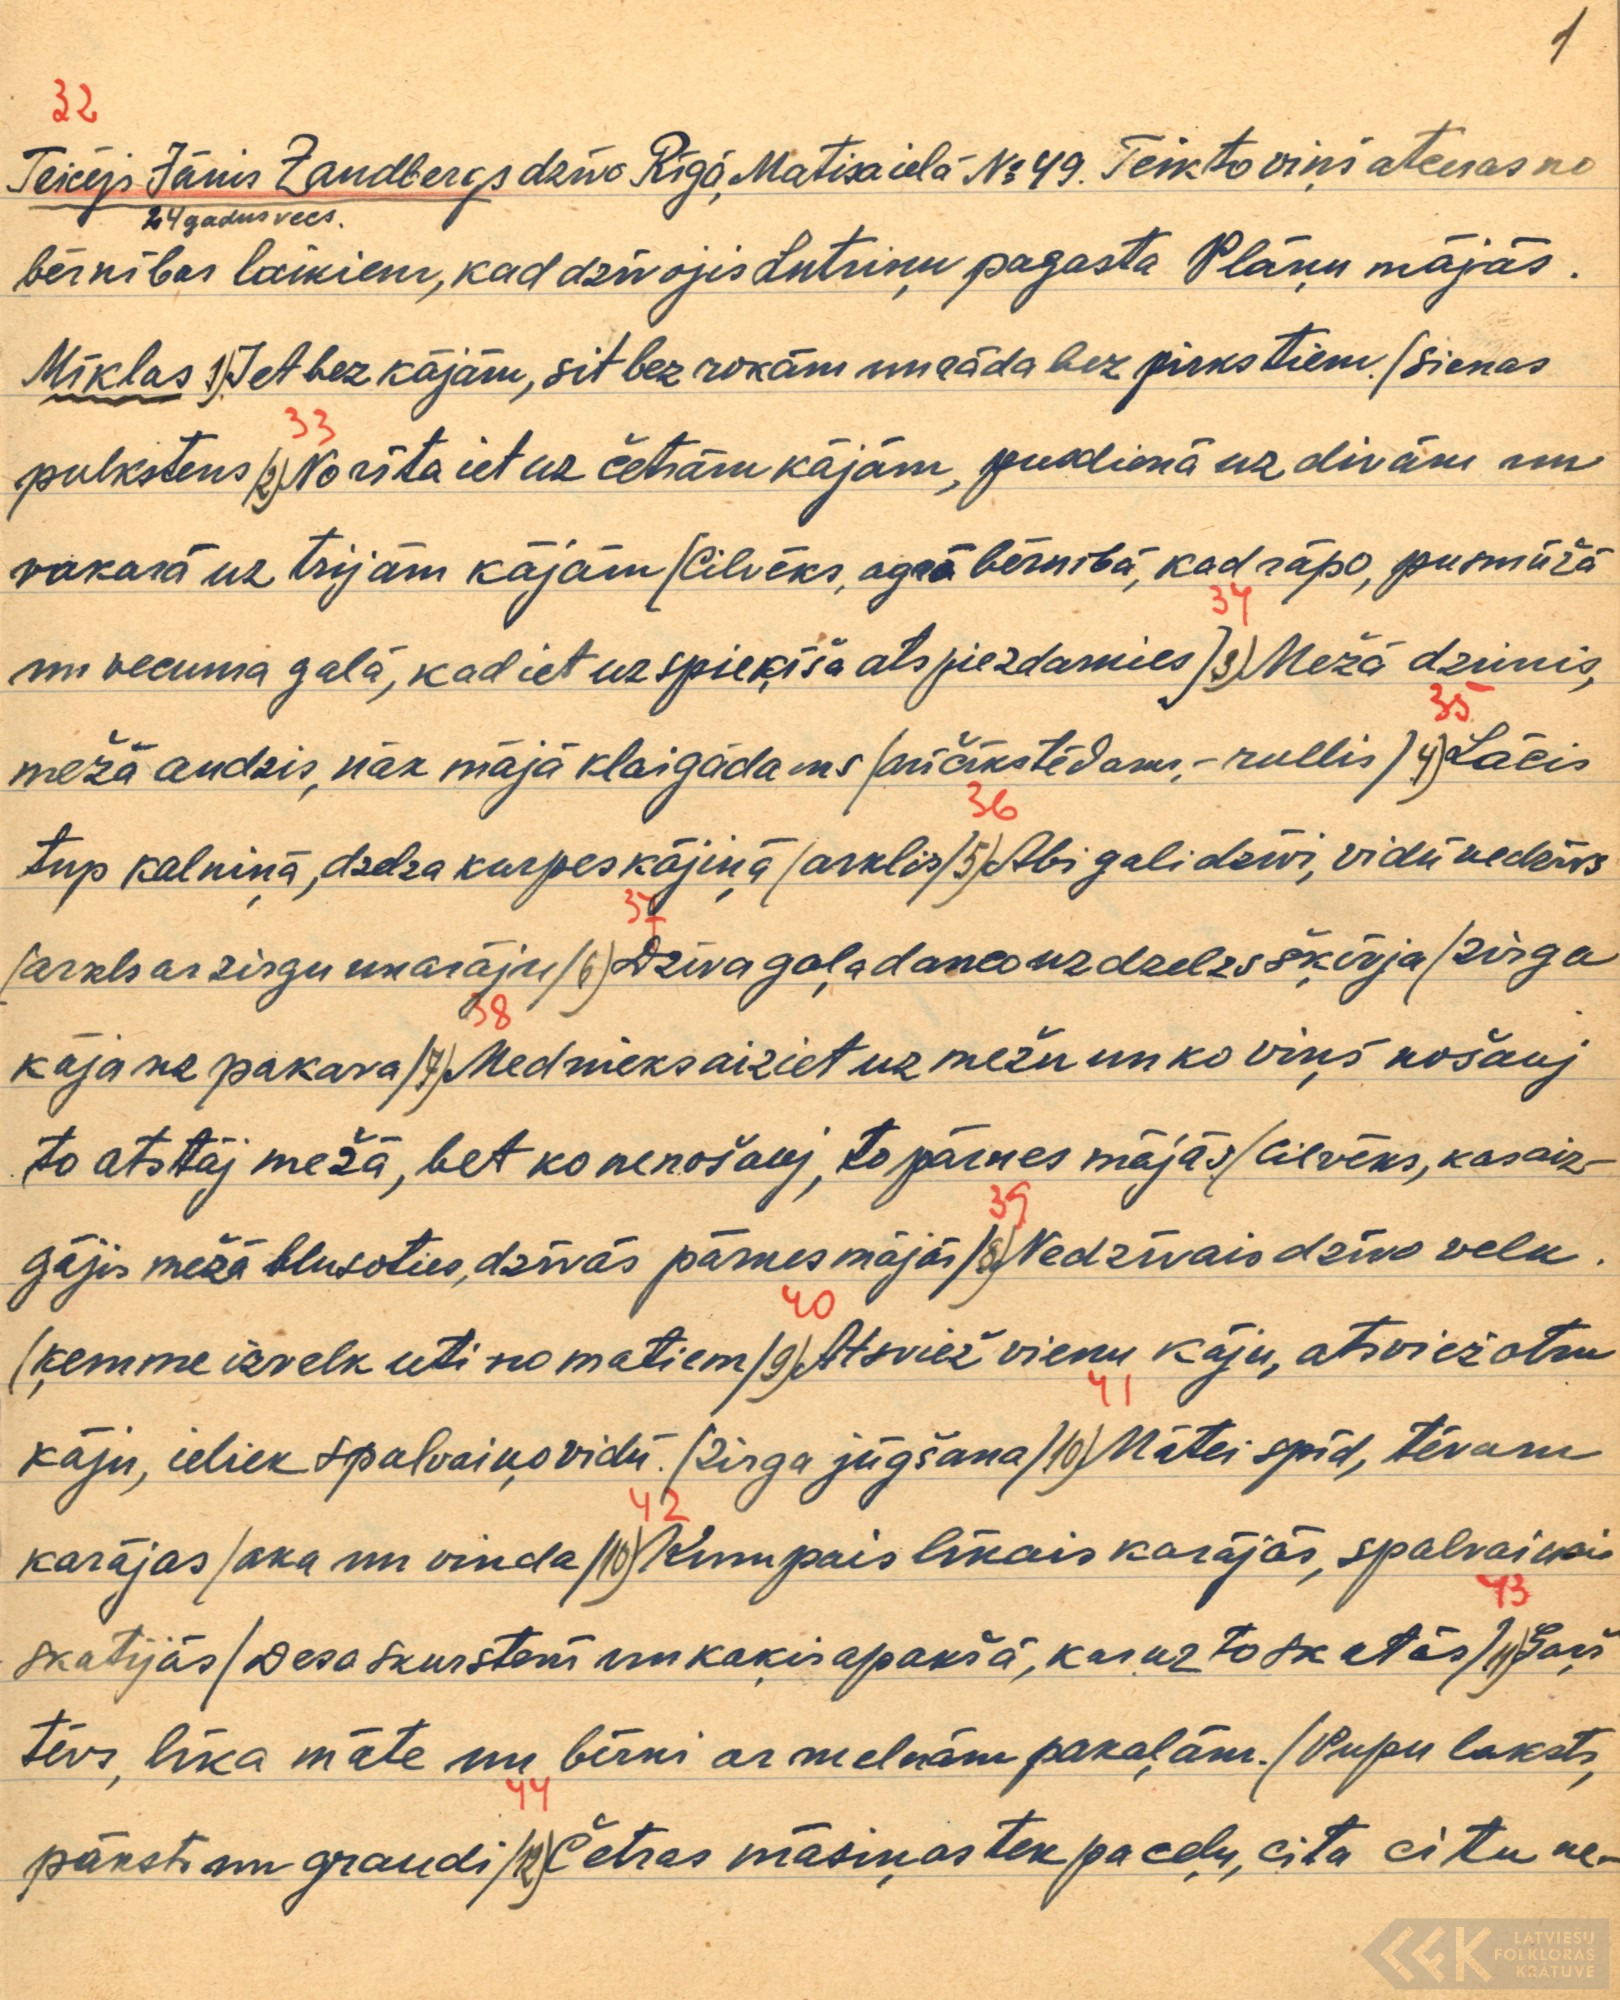 1
32
Teicējs Jānis Zandbergs dzīvo Rīgā, Matisa ielā № 49. Teikto viņš atceras no
24 gadus vecs.
bērnības laikiem, kad dzīvojis Lutriņu pagasta Plāņu mājās.
Mīklas 1) Iet bez kājām, sit bez rokām un rāda bez pirkstiem. (Sienas
33
pulkstens/2) No rīta iet uz četrām kājām, pusdienā uz divām un
vakarā uz trijām kājām (Cilvēks, agrā bērnībā, kad rāpo, pusmūžā
34
un vecuma galā, kad iet uz spieķīša atspiezdamies) 3) Mežā dzimis,
35
mežā audzis, nāk mājā klaigādams (ničīkstēdams, - rullis) 4) Lācis
36
tup kalniņā, dzelza kurpes kājiņā (arklis/5) Abi gali dzīvi, vidū nedzīvs
37
(arkls ar zirgu un arāju/6) Dzīva gaļa danco uz dzelzs šķīvja (zirga
38
kāja uz pakava/7) Mednieks aiziet uz mežu un ko viņš nošauj
to atstāj mežā, bet ko nenošauj, to pārnes mājās (Cilvēks, kas aiz-
39
gājis mežā blusoties, dzīvās pārnes mājās/8) Nedzīvais dzīvo velk.
40
(ķemme izvelk uti no matiem/9) Atsviež vienu kāju, atsviež otru
41
kāju, ieliek spalvaiņo vidū. (zirga jūgšana/10) Mātei spīd, tēvam
42
karājas (aka un vinda/10) Kumpais līkais karājās, spalvainais
43
skatijās (Desa skurstenī un kaķis apakšā, kas uz to skatās/11) Gaŗš
tēvs, līka māte un bērni ar melnām pakaļām. (Pupu laksts,
44
pāksts un graudi/12) Četras māsiņas tek pa ceļu, cita citu ne-
LATVIEŠU
FOLKLORAS
KRĀTUVE